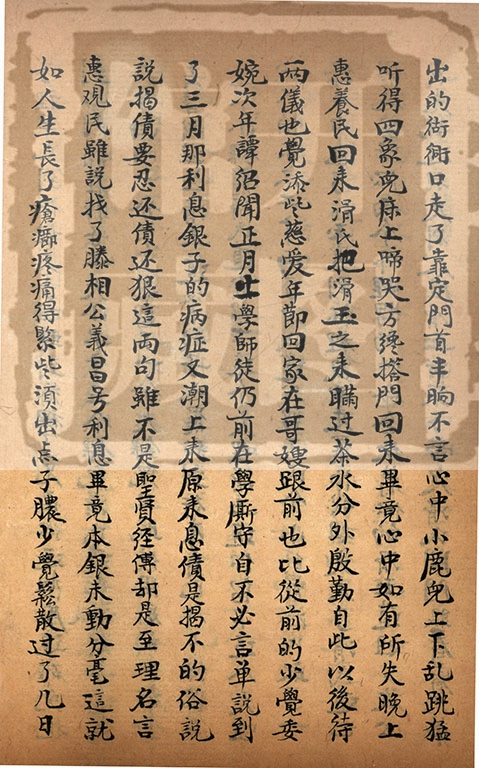 出的衚衕口走了靠定門首半晌不言心中小鹿兒上下乱跳猛
听得四象兒床上啼哭方纔搭門回来畢竟心中如有所失晚上
惠養民回来滑氏把滑玉之来瞞过茶水分外殷勤自此以後待
两儀也覺添些慈爱年節回家在哥嫂跟前也比從前的少覺委
婉次年譚紹聞正月上學師徒仍前在學厮守自不必言单說到
了三月那利息銀子的病症又潮上来原来息債是揭不的俗說
說揭債要忍还債还狠這两句雖不是聖賢经傳却是至理名言
惠观民雖說找了滕相公義昌号利息畢竟本銀未動分毫這就
如人生長了瘡癤疼痛得緊些須出点子膿少覺鬆散过了几日